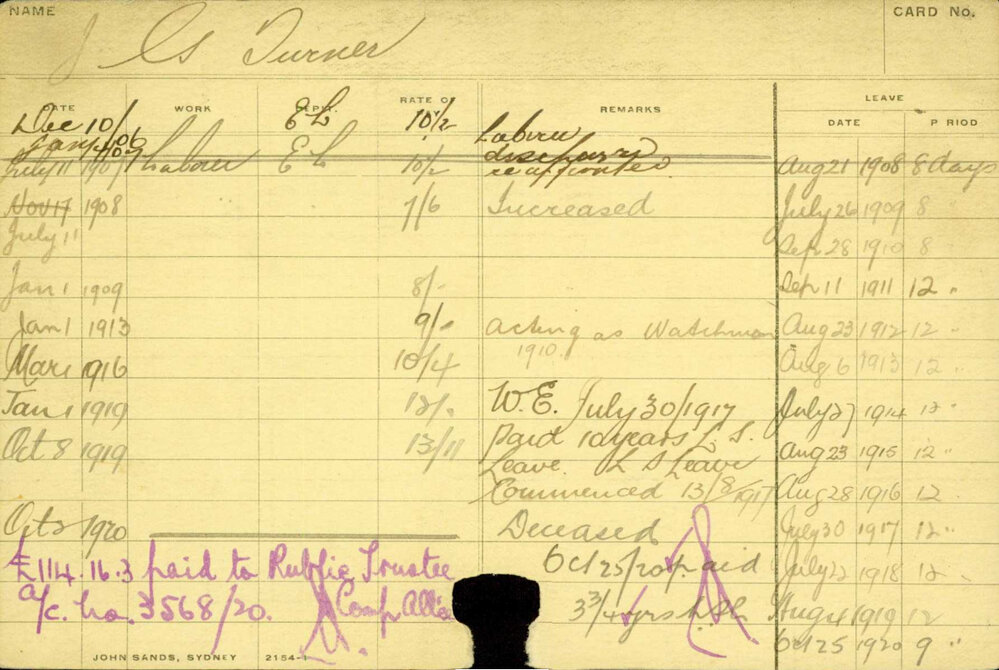 NAME CARD No.
J G Turner
DATE WORK DEPT. RATE OF REMARKS LEAVE
DATE PERIOD
Dec 10/06 EL 10½ Labour
Jan 4/07 discharged
July 11 1907 Labour EL 10/2 re appointed Aug 21 1908 8 days
Nov 17 1908 7/6 Increased July 26 1909 8 "
July 11 Sep 28 1910 8 "
Jan 1 1909 8/- Sep 11 1911 12 "
Jan 1 1913 9/- Acting as Watchman Aug 23 1912 12 "
1910.
Mar 1 1916 10/4 Aug 6 1913 12 "
Jan 1 1919 12/- W.E. July 30/1917 July 27 1914 12 "
Oct 8 1919 13/11 Paid 10 years L.S. Aug 23 1915 12 "
Leave. L S Leave
Commenced 13/8/1917 Aug 28 1916 12
Oct 1920 Deceased July 30 1917 12 "
£114.16.3 paid to Public Trustee Oct 25/20 paid July 22 1918 12 "
a/c. no. 3568/20. 3¾ yrs Aug 4 1919 12
Oct 25 1920 9 "
JOHN SANDS, SYDNEY 2154-1